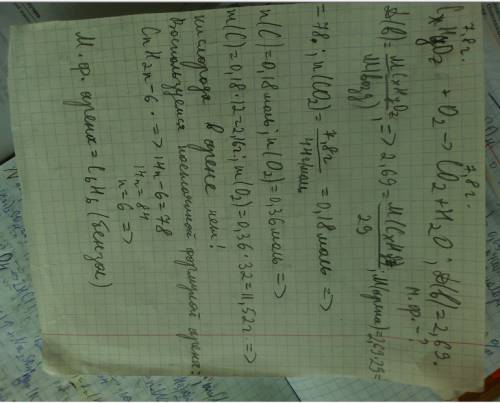 7,8г. 7,8г.
CxHyOz + O2 → CO2 + H2O; D(в)=2,69.
м.ф. - ?
D(в) = M(CxHyOz) / M(возд) ; => 2,69 = M(CxHyOz) / 29 ; M(арена)=2,69·29=
= 78.; n(CO2) = 7,8г / 44г/моль = 0,18моль =>
n(C) = 0,18моль; n(O2) = 0,36моль =>
m(C)=0,18·12=2,16г; m(O2)=0,36·32=11,52г =>
кислорода в арене нет!
Воспользуемся формулой арена:
CnH2n-6. => 14n-6=78
14n=84
n=6 =>
М.ф. арена = C6H6 (бензол)